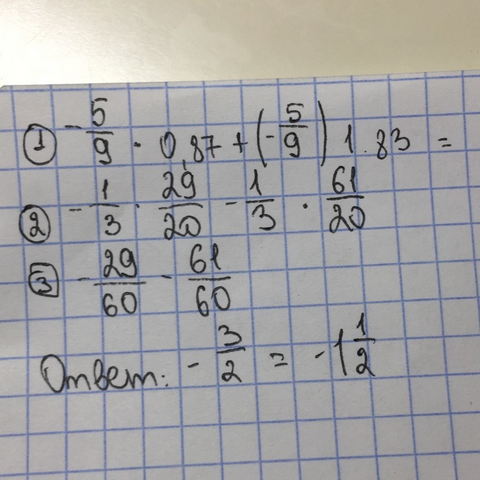 ① -5/9 · 0,87 + (-5/9) 1.83 =
② -1/3 · 29/20 - 1/3 · 61/20
③ -29/60 - 61/60
Ответ: -3/2 = -1 1/2